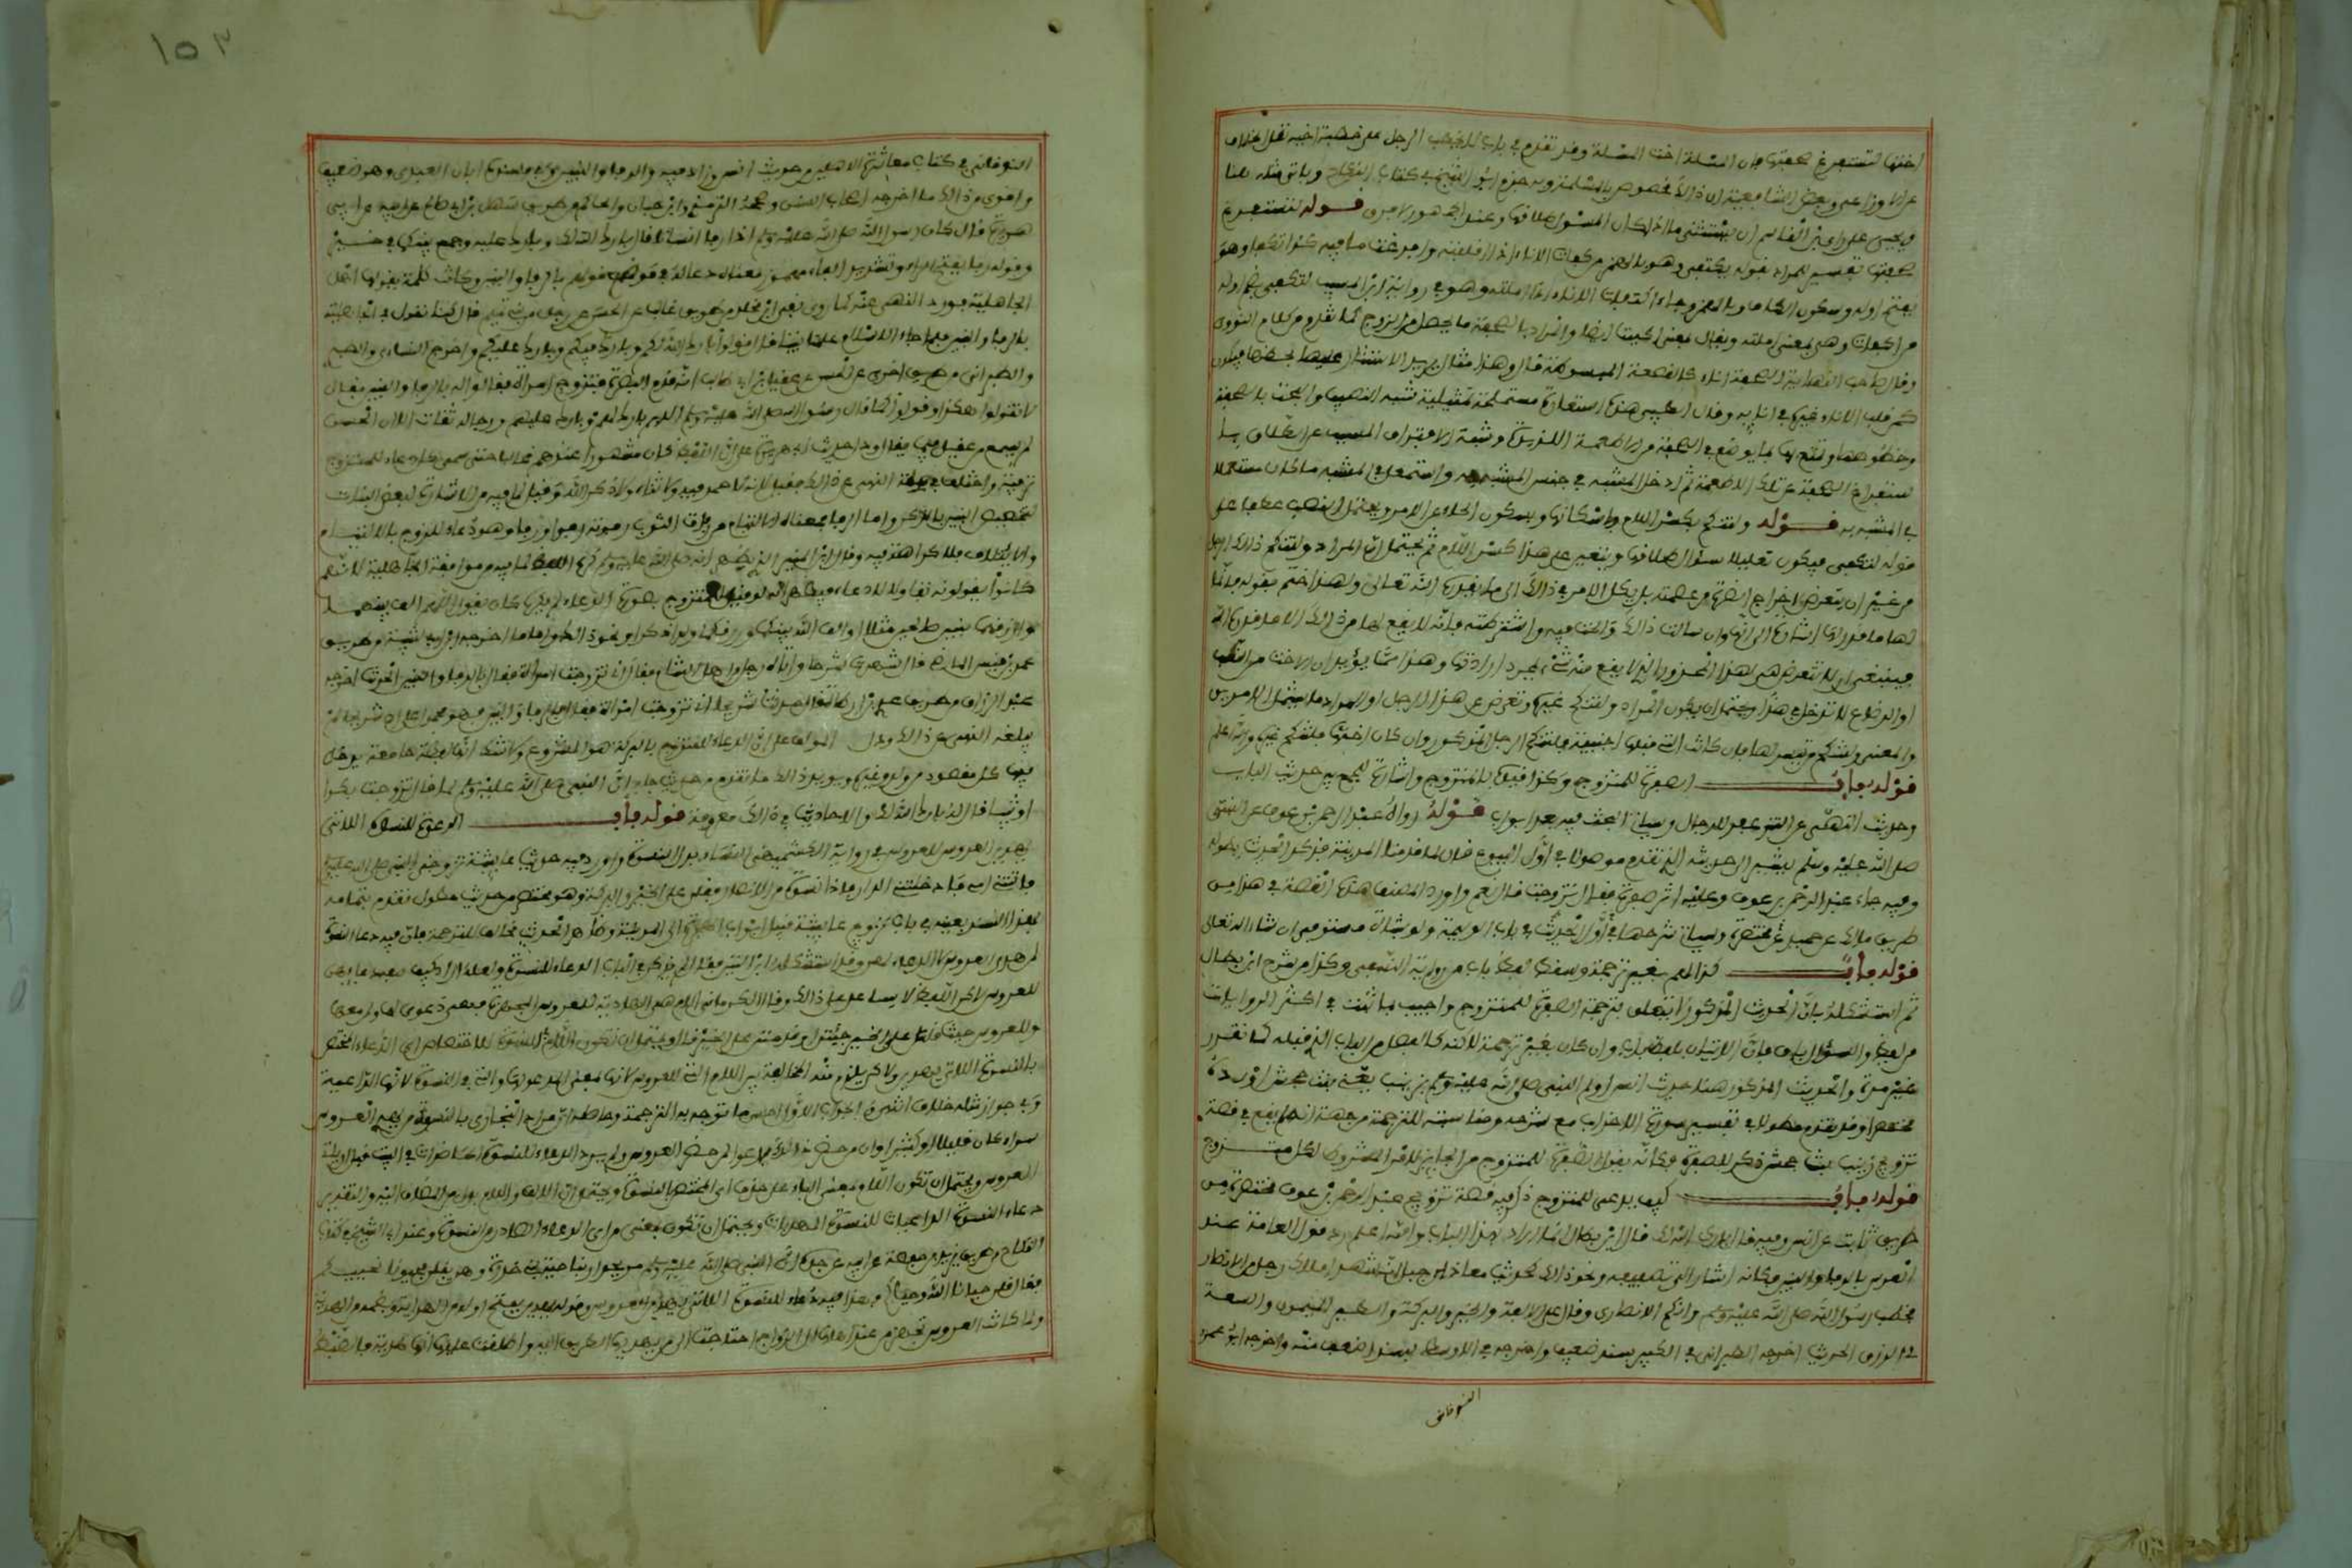 اختها لتستفرغ صحفتها فان المسلمة اخت المسلمة وقد تقدم في باب لا يخطب الرجل على خطبة اخيه نقل الخلاف
عن الاوزاعي وبعض الشافعية ان ذلك مخصوص بالمسلمة وبه جزم ابو الشيخ في كتاب النكاح وياتي مثله هنا
ويجيء على راي ابن القاسم ان يستثنى ما اذا كان المسئول طلاقها وعند الجمهور لا فرق قوله لتستفرغ
صحفتها تفسير للمراد بقوله تكتفئ وهو بالهمز من كفات الاناء اذا قلبته وافرغت ما فيه وكذا تكفا وهو
بفتح اوله وسكون الكاف وبالهمز وجاء اكفات الاناء اذا املته وهو في رواية ابن المسيب لتكفئ بضم اوله
من اكفات وهي بمعنى املته ويقال بمعنى اكببته ايضا والمراد بالصحفة ما يحصل من الزوج كما تقدم من كلام النووي
وقال صاحب النهاية الصحفة اناء كالقصعة المبسوطة قال وهذا مثل يريد الاستئثار عليها بحظها فيكون
كمن قلب الاناء غيره في انائه وقال الطيبي هذه استعارة مستملحة تمثيلية شبه النصيب والبخت بالصحفة
وحظوظها وتمتعاتها بما يوضع في الصحفة من الاطعمة اللذيذة وشبه الافتراق المسبب عن الطلاق با
ستفراغ الصحفة عن تلك الاطعمة ثم ادخل المشبه في جنس المشبه به واستعمل في المشبه ما كان مستعملا
في المشبه به قوله ولتنكح بكسر اللام وباسكانها وبسكون الحاء على الامر ويحتمل النصب عطفا على
قوله لتكتفئ فيكون تعليلا لسؤال طلاقها ويتعين على هذا كسر اللام ثم يحتمل ان المراد ولتنكح ذلك الرجل
من غير ان تتعرض لاخراج الضرة من عصمته بل تكل الامر في ذلك الى ما يقدره الله تعالى ولهذا ختم بقوله فانما
لها ما قدر لها اشارة الى انها وان سالت ذلك والحت فيه واشترطته فانه لا يقع لها من ذلك الا ما قدره الله
فينبغي ان لا تتعرض هي لهذا المحذور الذي لا يقع منه شيء بمجرد ارادتها وهذا مما يؤيد ان الاخت من النسب
او الرضاع لا تدخل في هذا ويحتمل ان يكون المراد ولتنكح غيره وتعرض عن هذا الرجل او المراد ما يشمل الامرين
والمعنى ولتنكح من تيسر لها فان كانت التي قبلها اجنبية فلتنكح الرجل المذكور وان كان اختها فلتنكح غيره والله اعلم
قوله باب الصفرة للمتزوج وكذا قيده بالمتزوج واشارة للجمع بين حديث الباب
وحديث النهي عن التزعفر للرجال وسياتي البحث فيه بعد ابواب قوله رواه عبد الرحمن بن عوف عن النبي
صلى الله عليه وسلم يشير الى حديثه الذي تقدم موصولا في اول البيوع قال لما قدمنا المدينة فذكر الحديث بطوله
وفيه جاء عبد الرحمن بن عوف وعليه اثر صفرة فقال تزوجت قال نعم واورد المصنف هذه القصة في هذا من
طريق مالك عن حميد مختصرة وسياتي شرحها في اول الحديث في باب الوليمة ولو بشاة مستوفى ان شاء الله تعالى
قوله باب كذا لهم بغير ترجمة وسقط لفظ باب من رواية النسفي وكذا من شرح ابن بطال
ثم استشكله بان الحديث المذكور لا يتعلق بترجمة الصفرة للمتزوج واجيب بما ثبت في اكثر الروايات
من لفظ باب والسؤال باق فان الاتيان بلفظ باب وان كان بغير ترجمة لكنه كالفصل من الباب الذي قبله كما تقرر
غير مرة والحديث المذكور هنا حديث انس اولم النبي صلى الله عليه وسلم بزينب يعني بنت جحش اورده
مختصرا وقد تقدم مطولا في تفسير سورة الاحزاب مع شرحه ومناسبته للترجمة من جهة انه لم يقع في قصة
تزويج زينب بنت جحش ذكر للصفرة فكانه يقول الصفرة للمتزوج من الجائز لا من المشروط لكل متزوج
قوله باب كيف يدعى للمتزوج ذكر فيه قصة تزويج عبد الرحمن بن عوف مختصرة من
طريق ثابت عن انس وفيه قال بارك الله لك قال ابن بطال انما اراد بهذا الباب والله اعلم رد قول العامة عند
العرس بالرفاء والبنين فكانه اشار الى تضعيفه ونحو ذلك كحديث معاذ بن جبل انه شهد املاك رجل من الانصار
فخطب رسول الله صلى الله عليه وسلم وانكح الانصاري وقال على الالفة والخير والبركة والطير الميمون والسعة
في الرزق الحديث اخرجه الطبراني في الكبير بسند ضعيف واخرجه في الاوسط بسند اضعف منه واخرجه ابو عمرو
النوقاني
١٥٢
النوقاني في كتاب معاشرة الاهلين من حديث انس وزاد فيه والرفاء والبنين وفي سنده ابان العبدي وهو ضعيف
واقوى من ذلك ما اخرجه اصحاب السنن وصححه الترمذي وابن حبان والحاكم من طريق سهل بن ابي صالح عن ابيه عن ابي
هريرة قال كان رسول الله صلى الله عليه وسلم اذا رفا انسانا قال بارك الله لك وبارك عليك وجمع بينكما في خير
وقوله رفا بفتح الراء وتشديد الفاء مهموز معناه دعا له في موضع قولهم بالرفاء والبنين وكانت كلمة يقولها اهل
الجاهلية فورد النهي عنها كما روى بقي بن مخلد من طريق غالب عن الحسن عن رجل من بني تميم قال كنا نقول في الجاهلية
بالرفاء والبنين فلما جاء الاسلام علمنا نبينا قال قولوا بارك الله لكم وبارك فيكم وبارك عليكم واخرج النسائي
والطبراني من طريق اخرى عن الحسن عن عقيل بن ابي طالب انه قدم البصرة فتزوج امراة فقالوا له بالرفاء والبنين فقال
لا تقولوا هكذا وقولوا كما قال رسول الله صلى الله عليه وسلم اللهم بارك لهم وبارك عليهم ورجاله ثقات الا ان الحسن
لم يسمع من عقيل فيما يقال ودل حديث ابي هريرة على ان اللفظ كان مشهورا عندهم غالبا حتى سمي كل دعاء للمتزوج
ترفية واختلف في علة النهي عن ذلك فقيل لانه لا حمد فيه ولا ثناء ولا ذكر الله وقيل لما فيه من الاشارة لبغض البنات
لتخصيص البنين بالذكر واما الرفاء فمعناه الالتئام من رفات الثوب رفوته رفوا ورفاء وهو دعاء للزوج بالالتئام
والائتلاف فلا كراهة فيه وقال ابن المنير الذي يظهر انه صلى الله عليه وسلم كره اللفظ لما فيه من موافقة الجاهلية لانهم
كانوا يقولونه تفاؤلا لا دعاء فيظهر انه لو قيل للمتزوج بصورة الدعاء لم يكره كان يقول اللهم الف بينهما
وارزقهما بنين صالحين مثلا او الف الله بينكما ورزقكما ولدا ذكرا ونحو ذلك واما ما اخرجه ابن ابي شيبة من طريق
عمر بن قيس الماضي قال شهدت شريحا واتاه رجل من اهل الشام فقال اني تزوجت امراة فقال بالرفاء والبنين الحديث اخرجه
عبد الرزاق من طريق عدي بن ارطاة قال حدثت شريحا اني تزوجت امراة فقال بالرفاء والبنين فهو محمول على ان شريحا لم
يبلغه النهي عن ذلك ودل المؤلف على ان الدعاء للمتزوج بالبركة هو المشروع ولا شك انها لفظة جامعة يدخل
فيها كل مقصود من ولد وغيره ويؤيد ذلك ما تقدم من حديث جابر ان النبي صلى الله عليه وسلم لما قال تزوجت بكرا
او ثيبا قال له بارك الله لك والاحاديث في ذلك معروفة قوله باب الدعوة للنسوة اللاتي
يهدين العروس للعروس في رواية الكشميهني النساء بدل النسوة واورد فيه حديث عايشة تزوجني النبي صلى الله عليه وسلم
فاتتني امي فادخلتني الدار فاذا نسوة من الانصار فقلن على الخير والبركة وهو مختصر من حديث مطول تقدم بتمامه
بهذا السند بعينه في باب تزويج عايشة قبيل ابواب الهجرة الى المدينة وظاهر الحديث مخالف للترجمة فان فيه دعاء النسوة
لمن هدى العروس لا الدعاء لهن وقد استشكله ابن التين فقال لم يذكر في الباب الدعاء للنسوة ولعله اراد كيف صفة دعائهن
للعروس لكن اللفظ لا يساعد على ذلك وقال الكرماني الام هي الهادية للعروس المجهزة فهن دعون لها ولمن معها
وللعروس حيث قلن على الخير جئتن او قدمتن على الخير قال ويحتمل ان تكون اللام في للنسوة للاختصاص اي الدعاء المختص
بالنسوة اللاتي يهدين ولكن يلزم منه المخالفة بين اللام التي للعروس لانها بمعنى المدعو لها والتي في النسوة لانها الداعية
وفي جواز مثله خلاف انتهى والجواب الاول احسن ما توجه به الترجمة وحاصله ان مراد البخاري بالنسوة من يهدي العروس
سواء كن قليلا او كثيرا وان من حضر ذلك يدعو لمن حضر العروس ولم يرد الدعاء للنسوة الحاضرات في البيت قبل ان تاتي
العروس ويحتمل ان تكون اللام بمعنى الباء على حذف اي المختص بالنسوة ويحتمل ان الالف واللام بدل من المضاف اليه والتقدير
دعاء النسوة الداعيات للنسوة المهديات ويحتمل ان تكون بمعنى من اي الدعاء الصادر من النسوة وعند ابي الشيخ في كتاب
النكاح من طريق يزيد بن حفصة عن ابيه عن جده ان النبي صلى الله عليه وسلم مر بجوار بناحية بني خدرة وهن يقلن فحيونا نحييكم
فقال قلن حيانا الله وحياكم فهذا فيه دعاء للنسوة اللاتي يهدين العروس وقوله يهدين بفتح اوله من الهداية وبضمه من الهدية
ولما كانت العروس تجهز من عند اهلها الى الزوج احتاجت الى من يهديها الطريق اليه واطلقت عليها انها هدية فالضبط